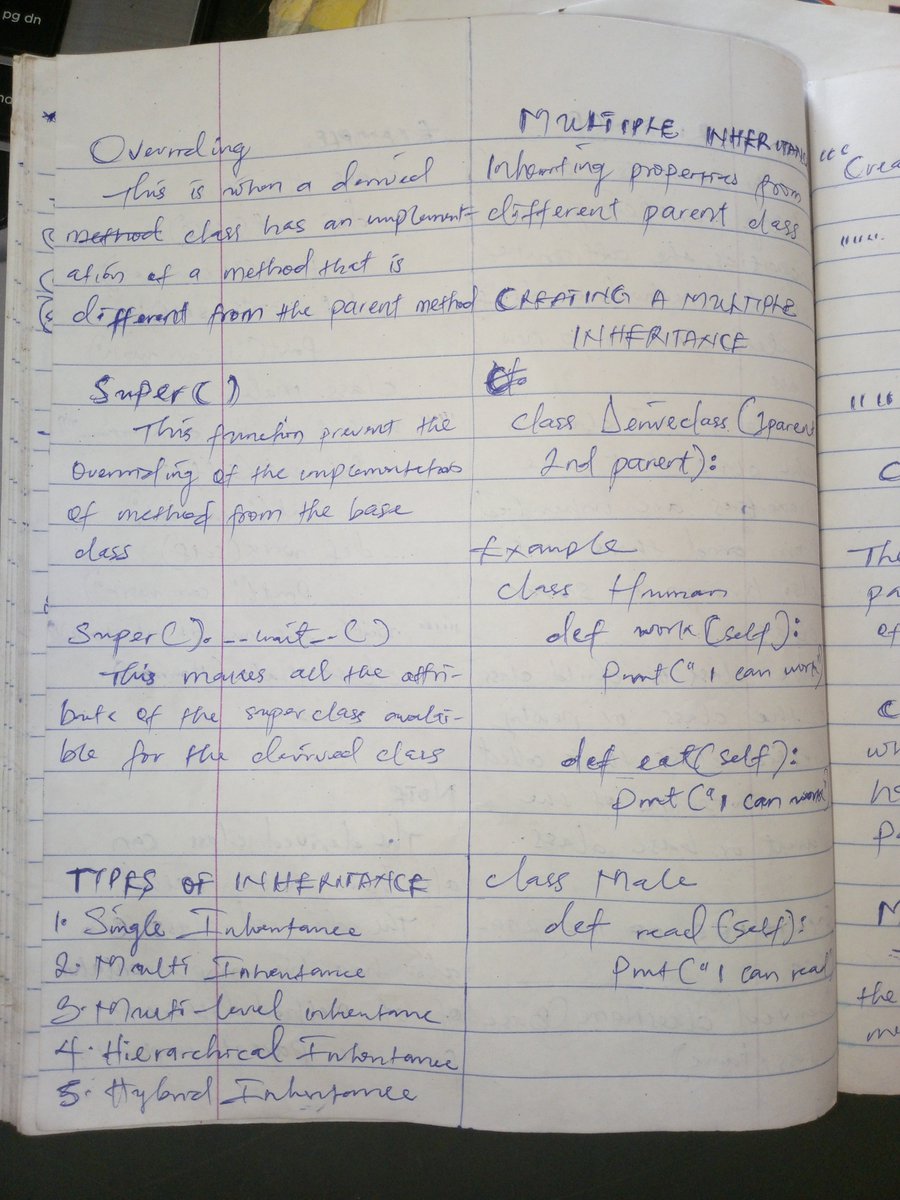 pg dn
Overriding
This is when a derived
method class has an implement-
ation of a method that is
different from the parent method
Super()
This function prevent the
Overriding of the implementation
of method from the base
class
Super().__init__()
This makes all the attri-
bute of the superclass availi-
ble for the derived class
TYPES OF INHERITANCE
1. Single Inheritance
2. Multi Inheritance
3. Multi-level inheritane
4. Hierarchical Inheritance
5. Hybrid Inheritance
MULTIPLE INHERITAN
Inheriting properties from
different parent class
CREATING A MULTIPLE
INHERITANCE
class Deriveclass (1parent
2nd parent):
Example
class Human
def work(self):
Print("I can work")
def eat(self):
Print("I can work")
class Male
def read (self):
Print("I can read
"""
Crea
""""
""""
C
The
pa
of
C
wh
ha
pa
M
the
me